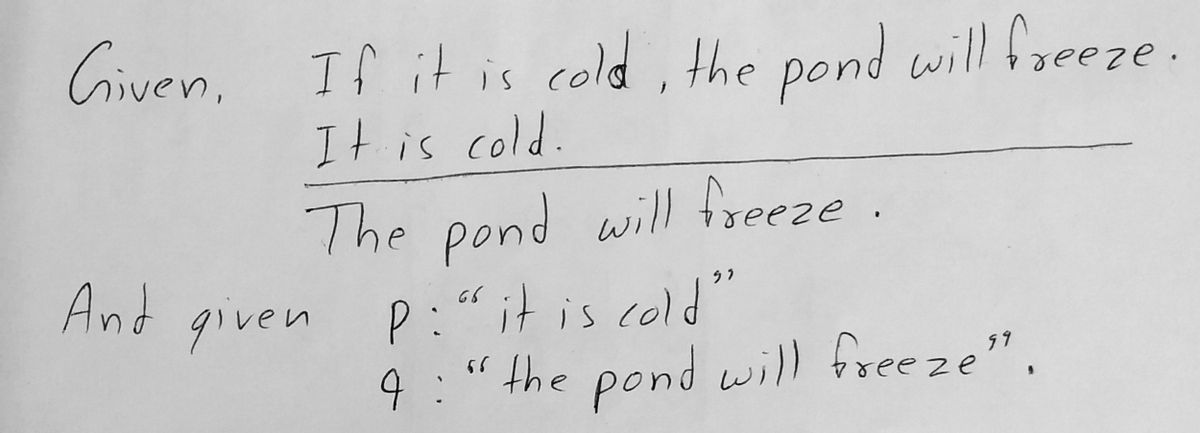 Given, If it is cold, the pond will freeze.
It is cold.
The pond will freeze.
And given p: "it is cold"
q: "the pond will freeze".